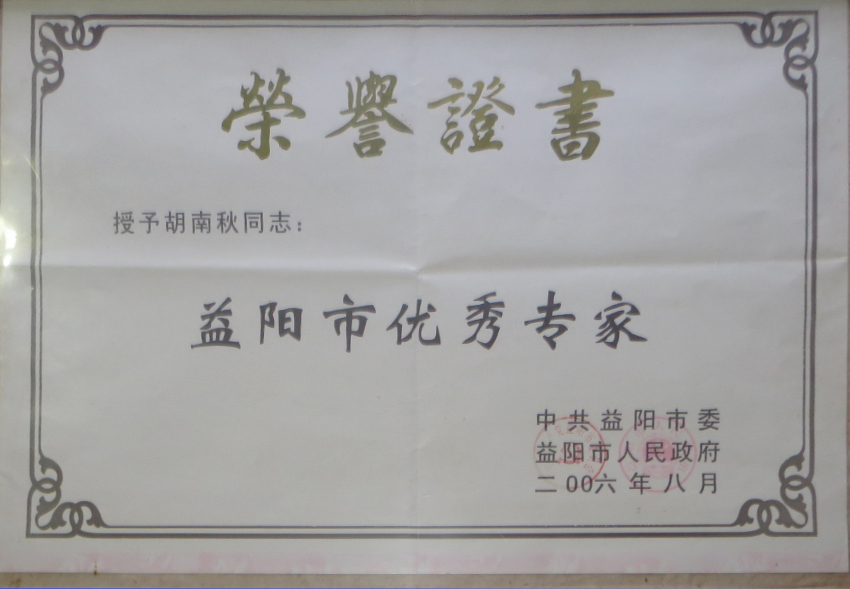 榮譽證書
授予胡南秋同志：
益阳市优秀专家
中共益阳市委
益阳市人民政府
二00六年八月